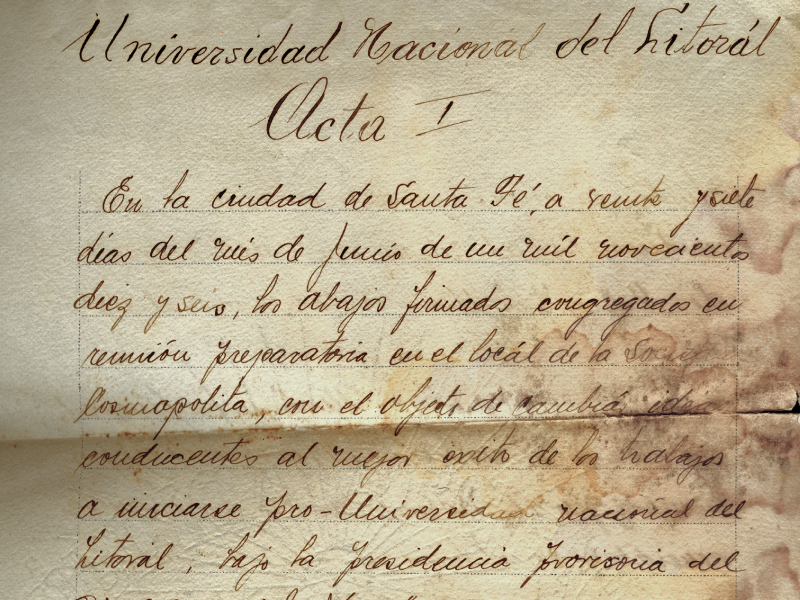 Universidad Nacional del Litorál
Acta I
En la ciudad de Santa Fé, a veinte y siete
días del mes de Junio de un mil novecientos
diez y seis, los abajo firmados congregados en
reunión preparatoria en el locál de la
Cosmopolita, con el objeto de cambiar
conducentes al mejor éxito de los trabajos
a iniciarse pro-Universidad nacional del
Litoral, bajo la presidencia provisoria del